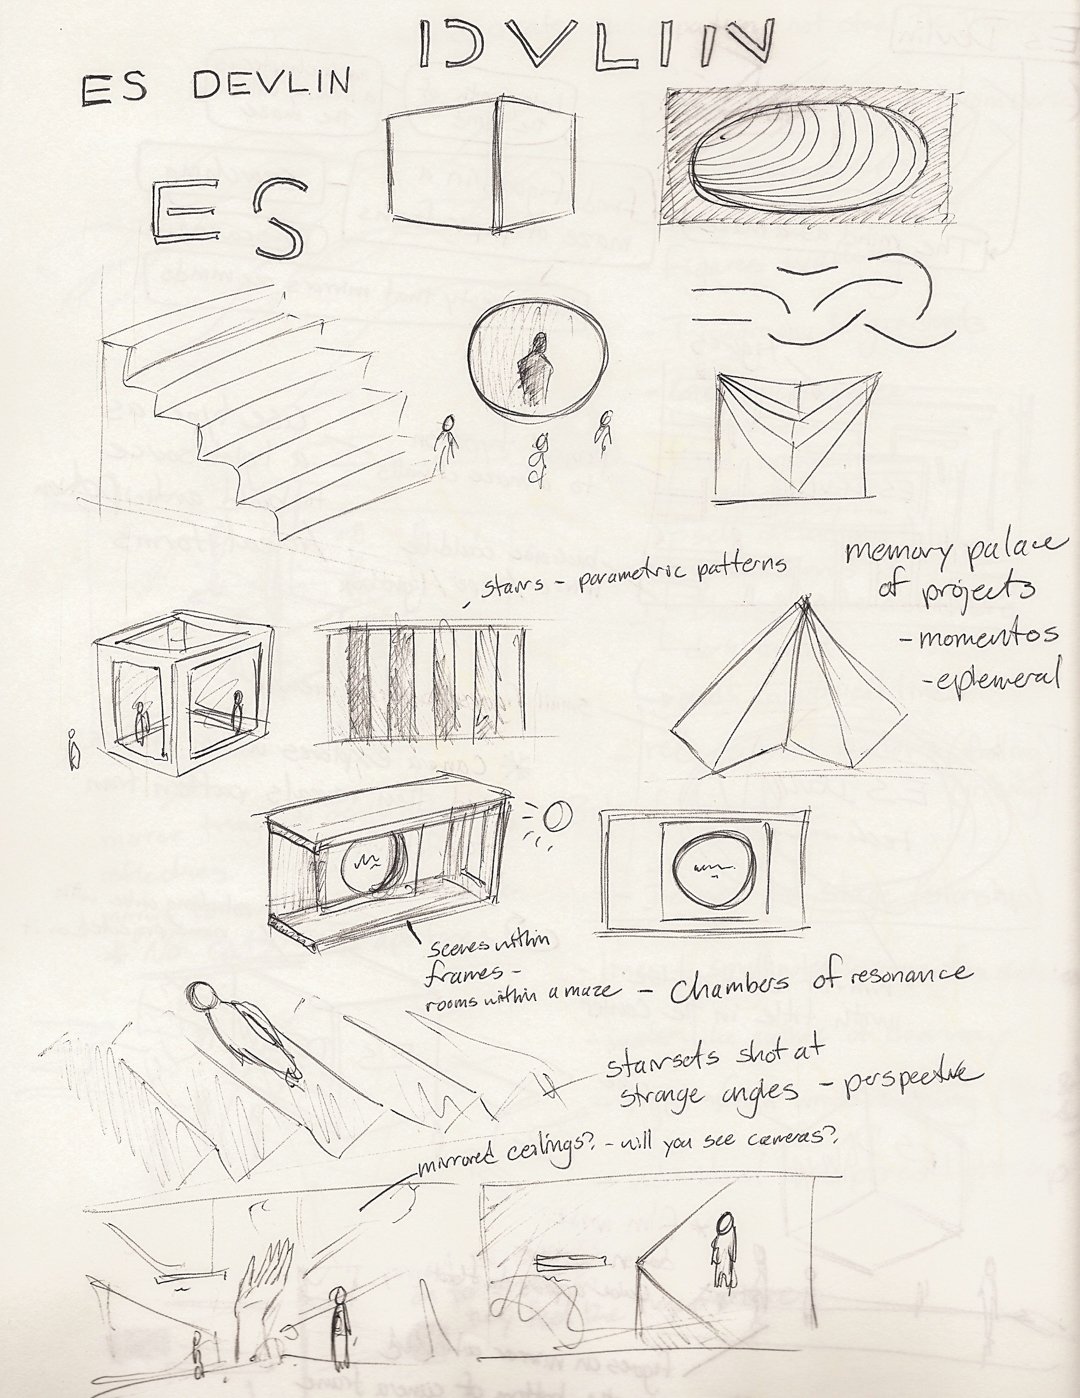 DVLIIN
ES DEVLIN
ES
stairs - parametric patterns
memory palace
of projects
- momentos
- ephemeral
scenes within
frames -
rooms within a maze - Chambers of resonance
stairsets shot at
strange angles - perspective
mirrored ceilings? - will you see cameras?